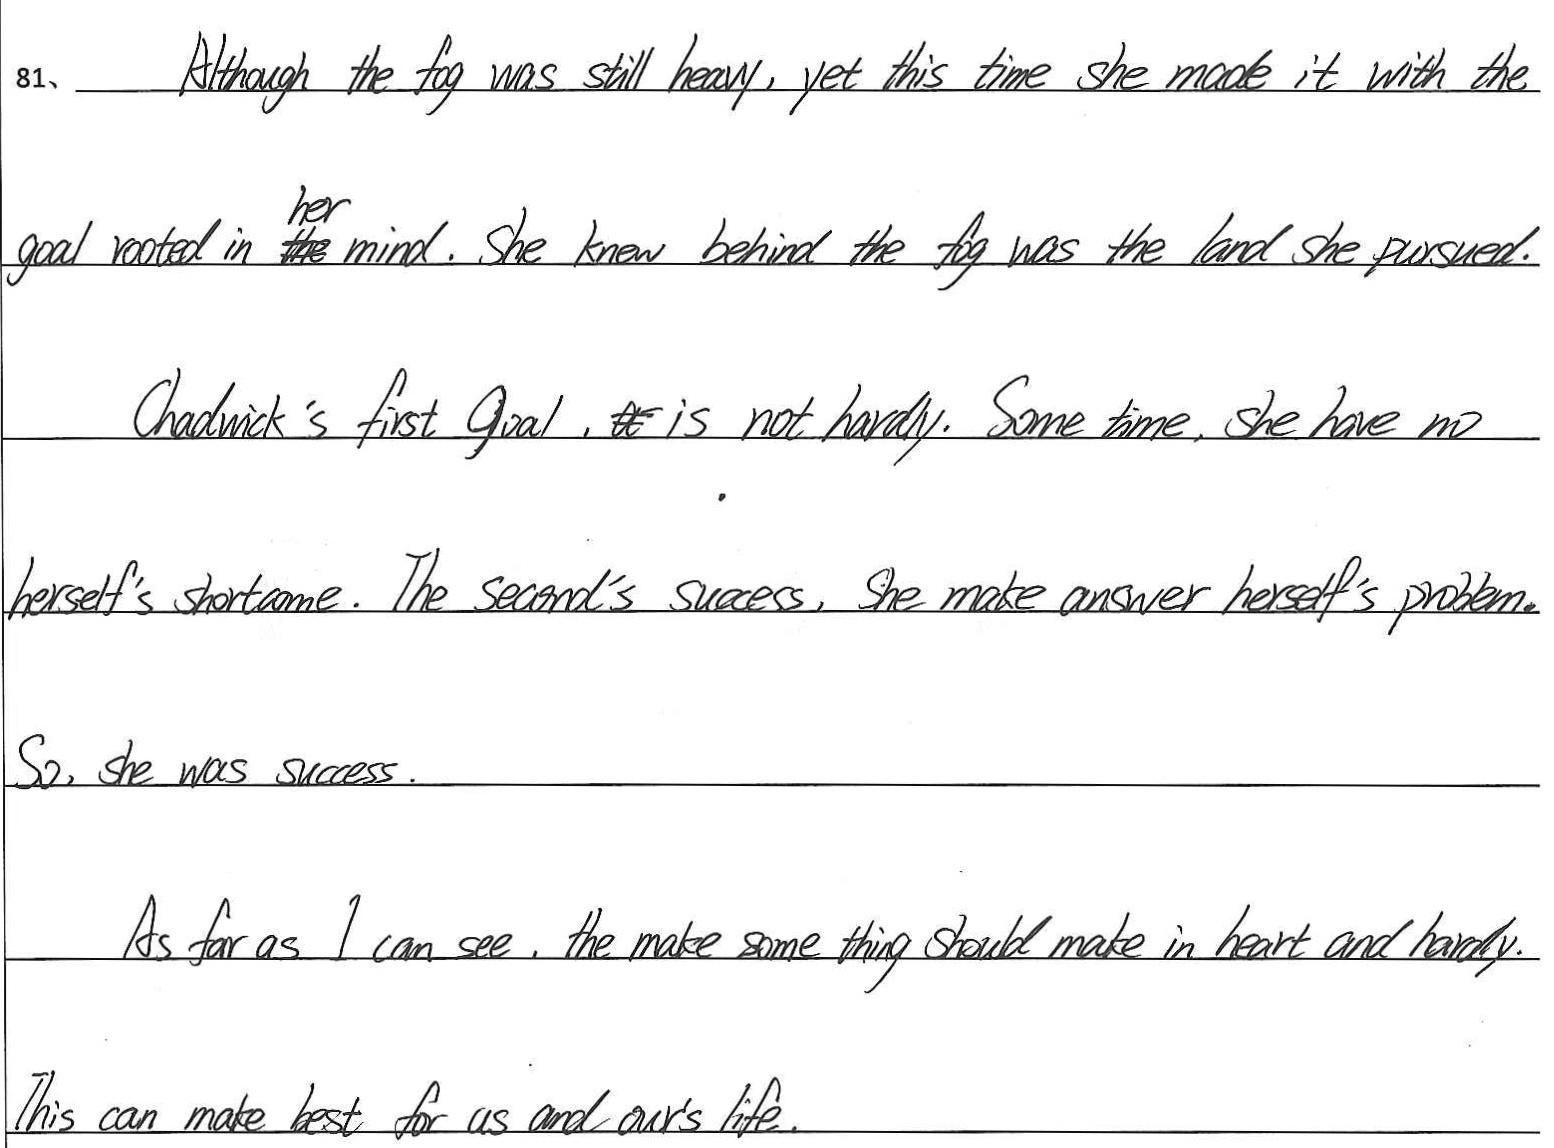 81、 Although the fog was still heavy, yet this time she made it with the
her
goal rooted in the mind. She knew behind the fog was the land she pursued.
Chadwick's first goal, it is not hardly. Some time, she have no
herself's shortcome. The second's success, She make answer herself's problem.
So, she was success.
As far as I can see, the make some thing should make in heart and hardly.
This can make best for us and our's life.